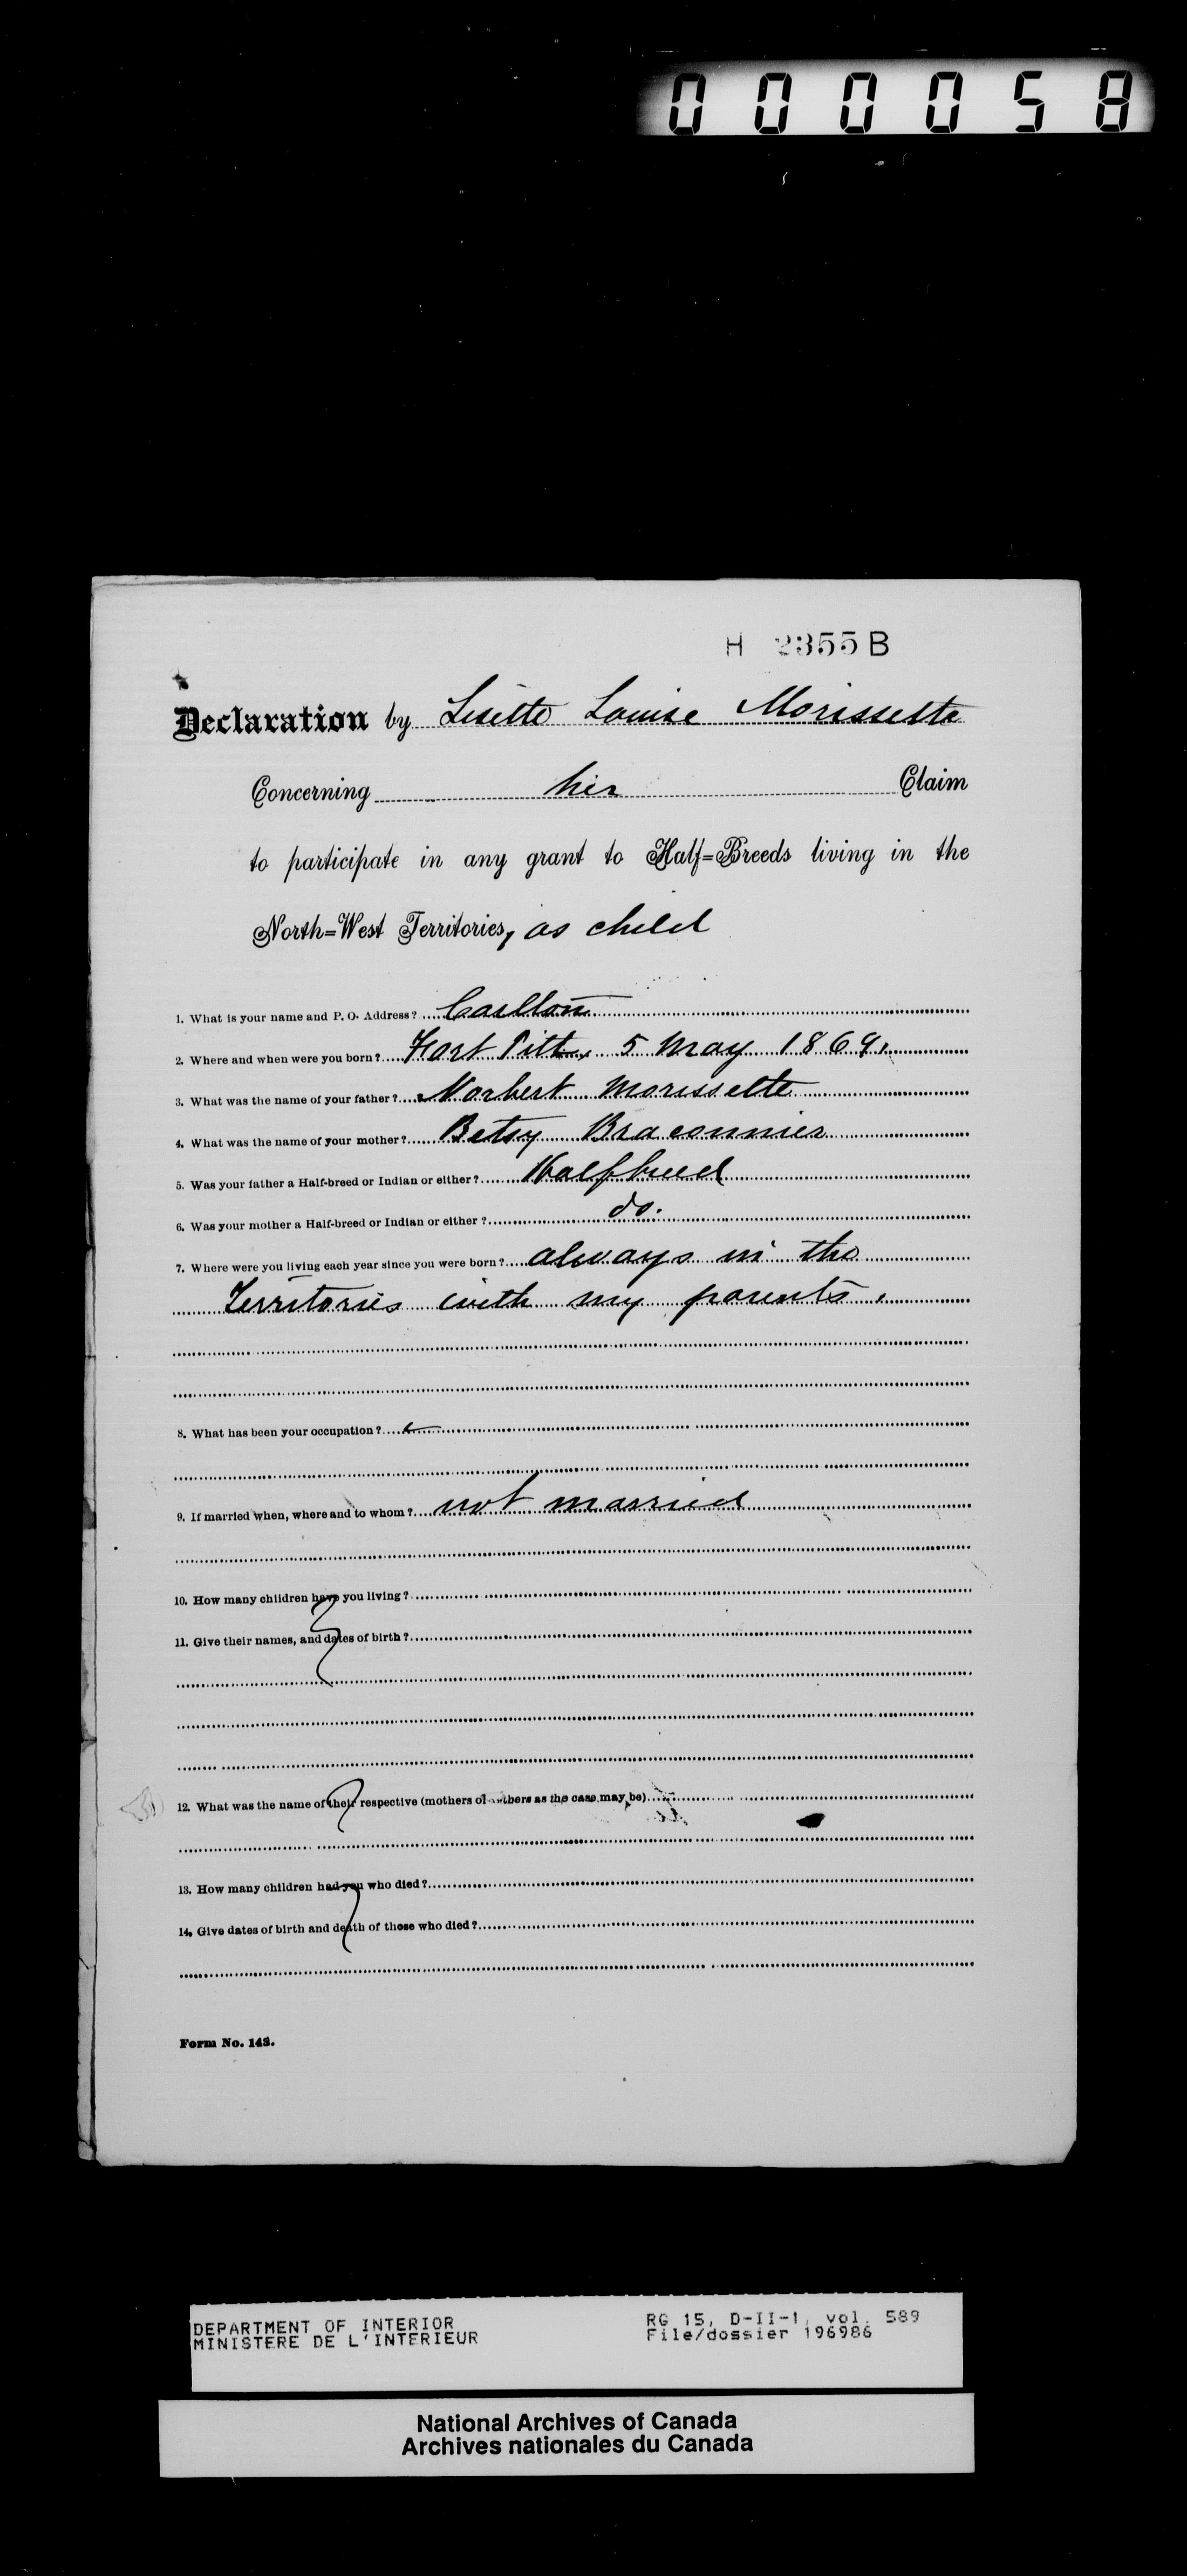 000058
H 2355 B
Declaration by Lisette Louise Morissette
Concerning her Claim
to participate in any grant to Half-Breeds living in the
North-West Territories, as child
1. What is your name and P. O. Address? Carlton
2. Where and when were you born? Fort Pitt, 5 May 1869.
3. What was the name of your father? Norbert Morissette
4. What was the name of your mother? Betsy Braconnier
5. Was your father a Half-breed or Indian or either? Halfbreed
6. Was your mother a Half-breed or Indian or either? do.
7. Where were you living each year since you were born? always in the
Territories with my parents.
8. What has been your occupation?
9. If married when, where and to whom? not married
10. How many children have you living?
11. Give their names, and dates of birth?
12. What was the name of their respective (mothers or fathers as the case may be)
13. How many children had you who died?
14. Give dates of birth and death of those who died?
Form No. 143.
DEPARTMENT OF INTERIOR
MINISTERE DE L'INTERIEUR
RG 15, D-II-1, vol. 589
File/dossier 196986
National Archives of Canada
Archives nationales du Canada